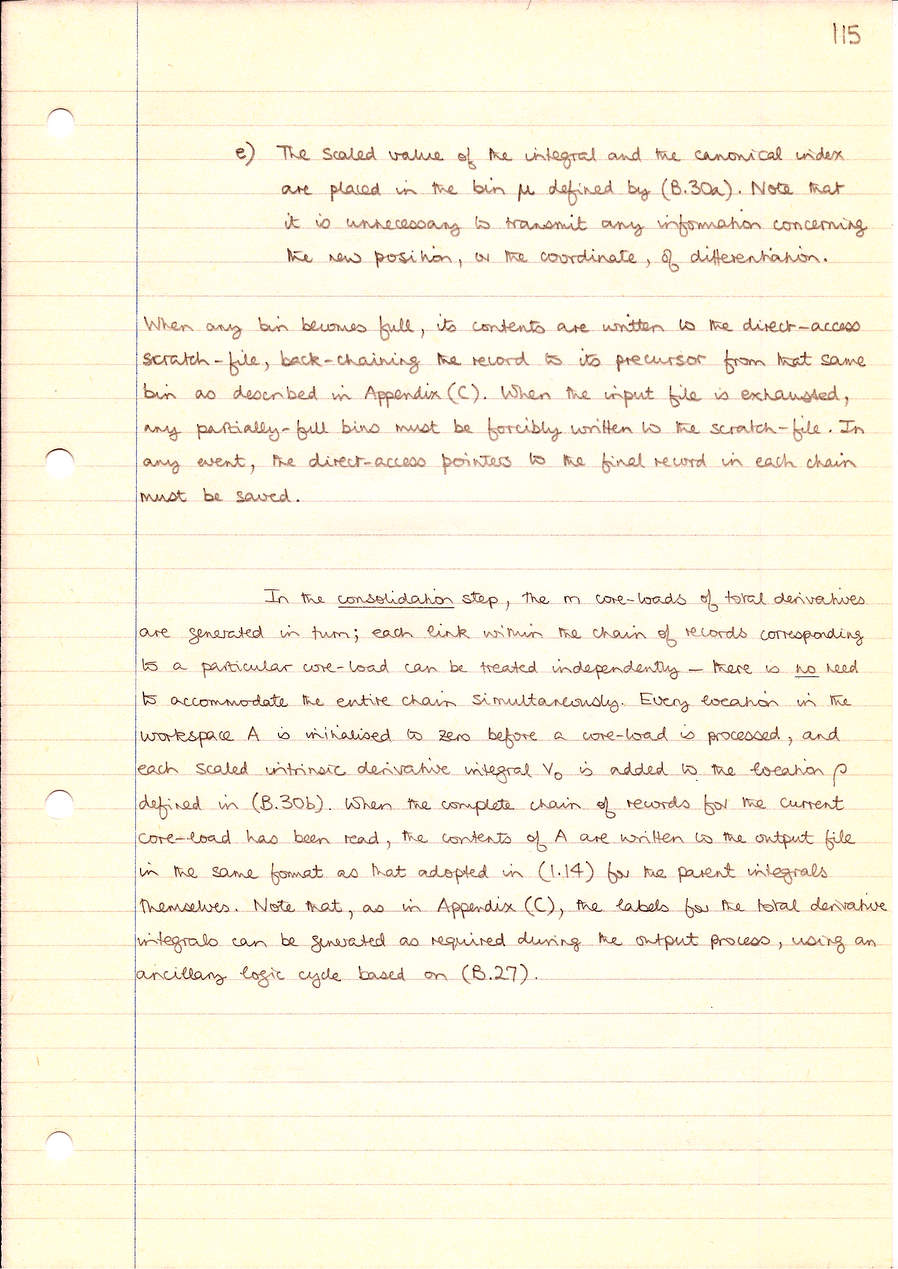 115
e) The scaled value of the integral and the canonical index
are placed in the bin μ defined by (B.30a). Note that
it is unnecessary to transmit any information concerning
the new position, or the coordinate, of differentiation.
When any bin becomes full, its contents are written to the direct-access
scratch-file, back-chaining the record to its precursor from that same
bin as described in Appendix (C). When the input file is exhausted,
any partially-full bins must be forcibly written to the scratch-file. In
any event, the direct-access pointers to the final record in each chain
must be saved.
In the consolidation step, the m core-loads of total derivatives
are generated in turn; each link within the chain of records corresponding
to a particular core-load can be treated independently — there is no need
to accommodate the entire chain simultaneously. Every location in the
workspace A is initialised to zero before a core-load is processed, and
each scaled intrinsic derivative integral V₀ is added to the location ρ
defined in (B.30b). When the complete chain of records for the current
core-load has been read, the contents of A are written to the output file
in the same format as that adopted in (1.14) for the parent integrals
themselves. Note that, as in Appendix (C), the labels for the total derivative
integrals can be generated as required during the output process, using an
ancillary logic cycle based on (B.27).